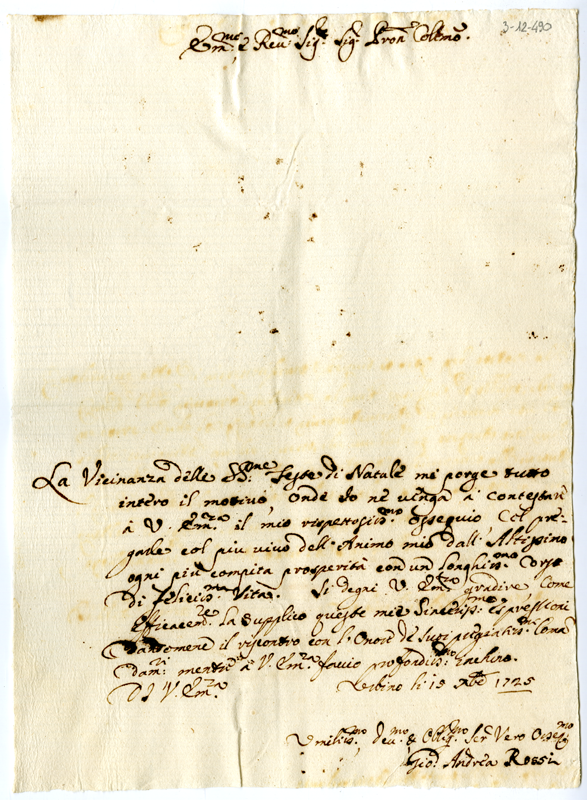 3-12-490
Em.mo e Rev.mo Sig.re Sig. Pron Colmo.
La Vicinanza delle SS.me Feste di Natale mi porge tutto
intero il motivo, onde io ne venga a contestare
à V. Em.za il mio rispettosiss.mo ossequio, col pre-
garle col piu vivo dell'Animo mio dall'Altissimo
ogni più compita prosperità con un longhiss.mo Corso
di feliciss.ma Vita. Si degni V. Em.za gradire, Come
la Supplico queste mie Sinceriss.me espressioni
dandomene il riscontro con l'Onore de Suoi pregiatiss.mi Coman
dam.ti mentre à V. Em.za faccio profondiss.mo inchino.
DI V. Em.za Urbino li 15 Xbre 1725
Umiliss.mo Dev.mo & Obblig.mo Ser Vero Osseq.mo
Gio. Andrea Rossi